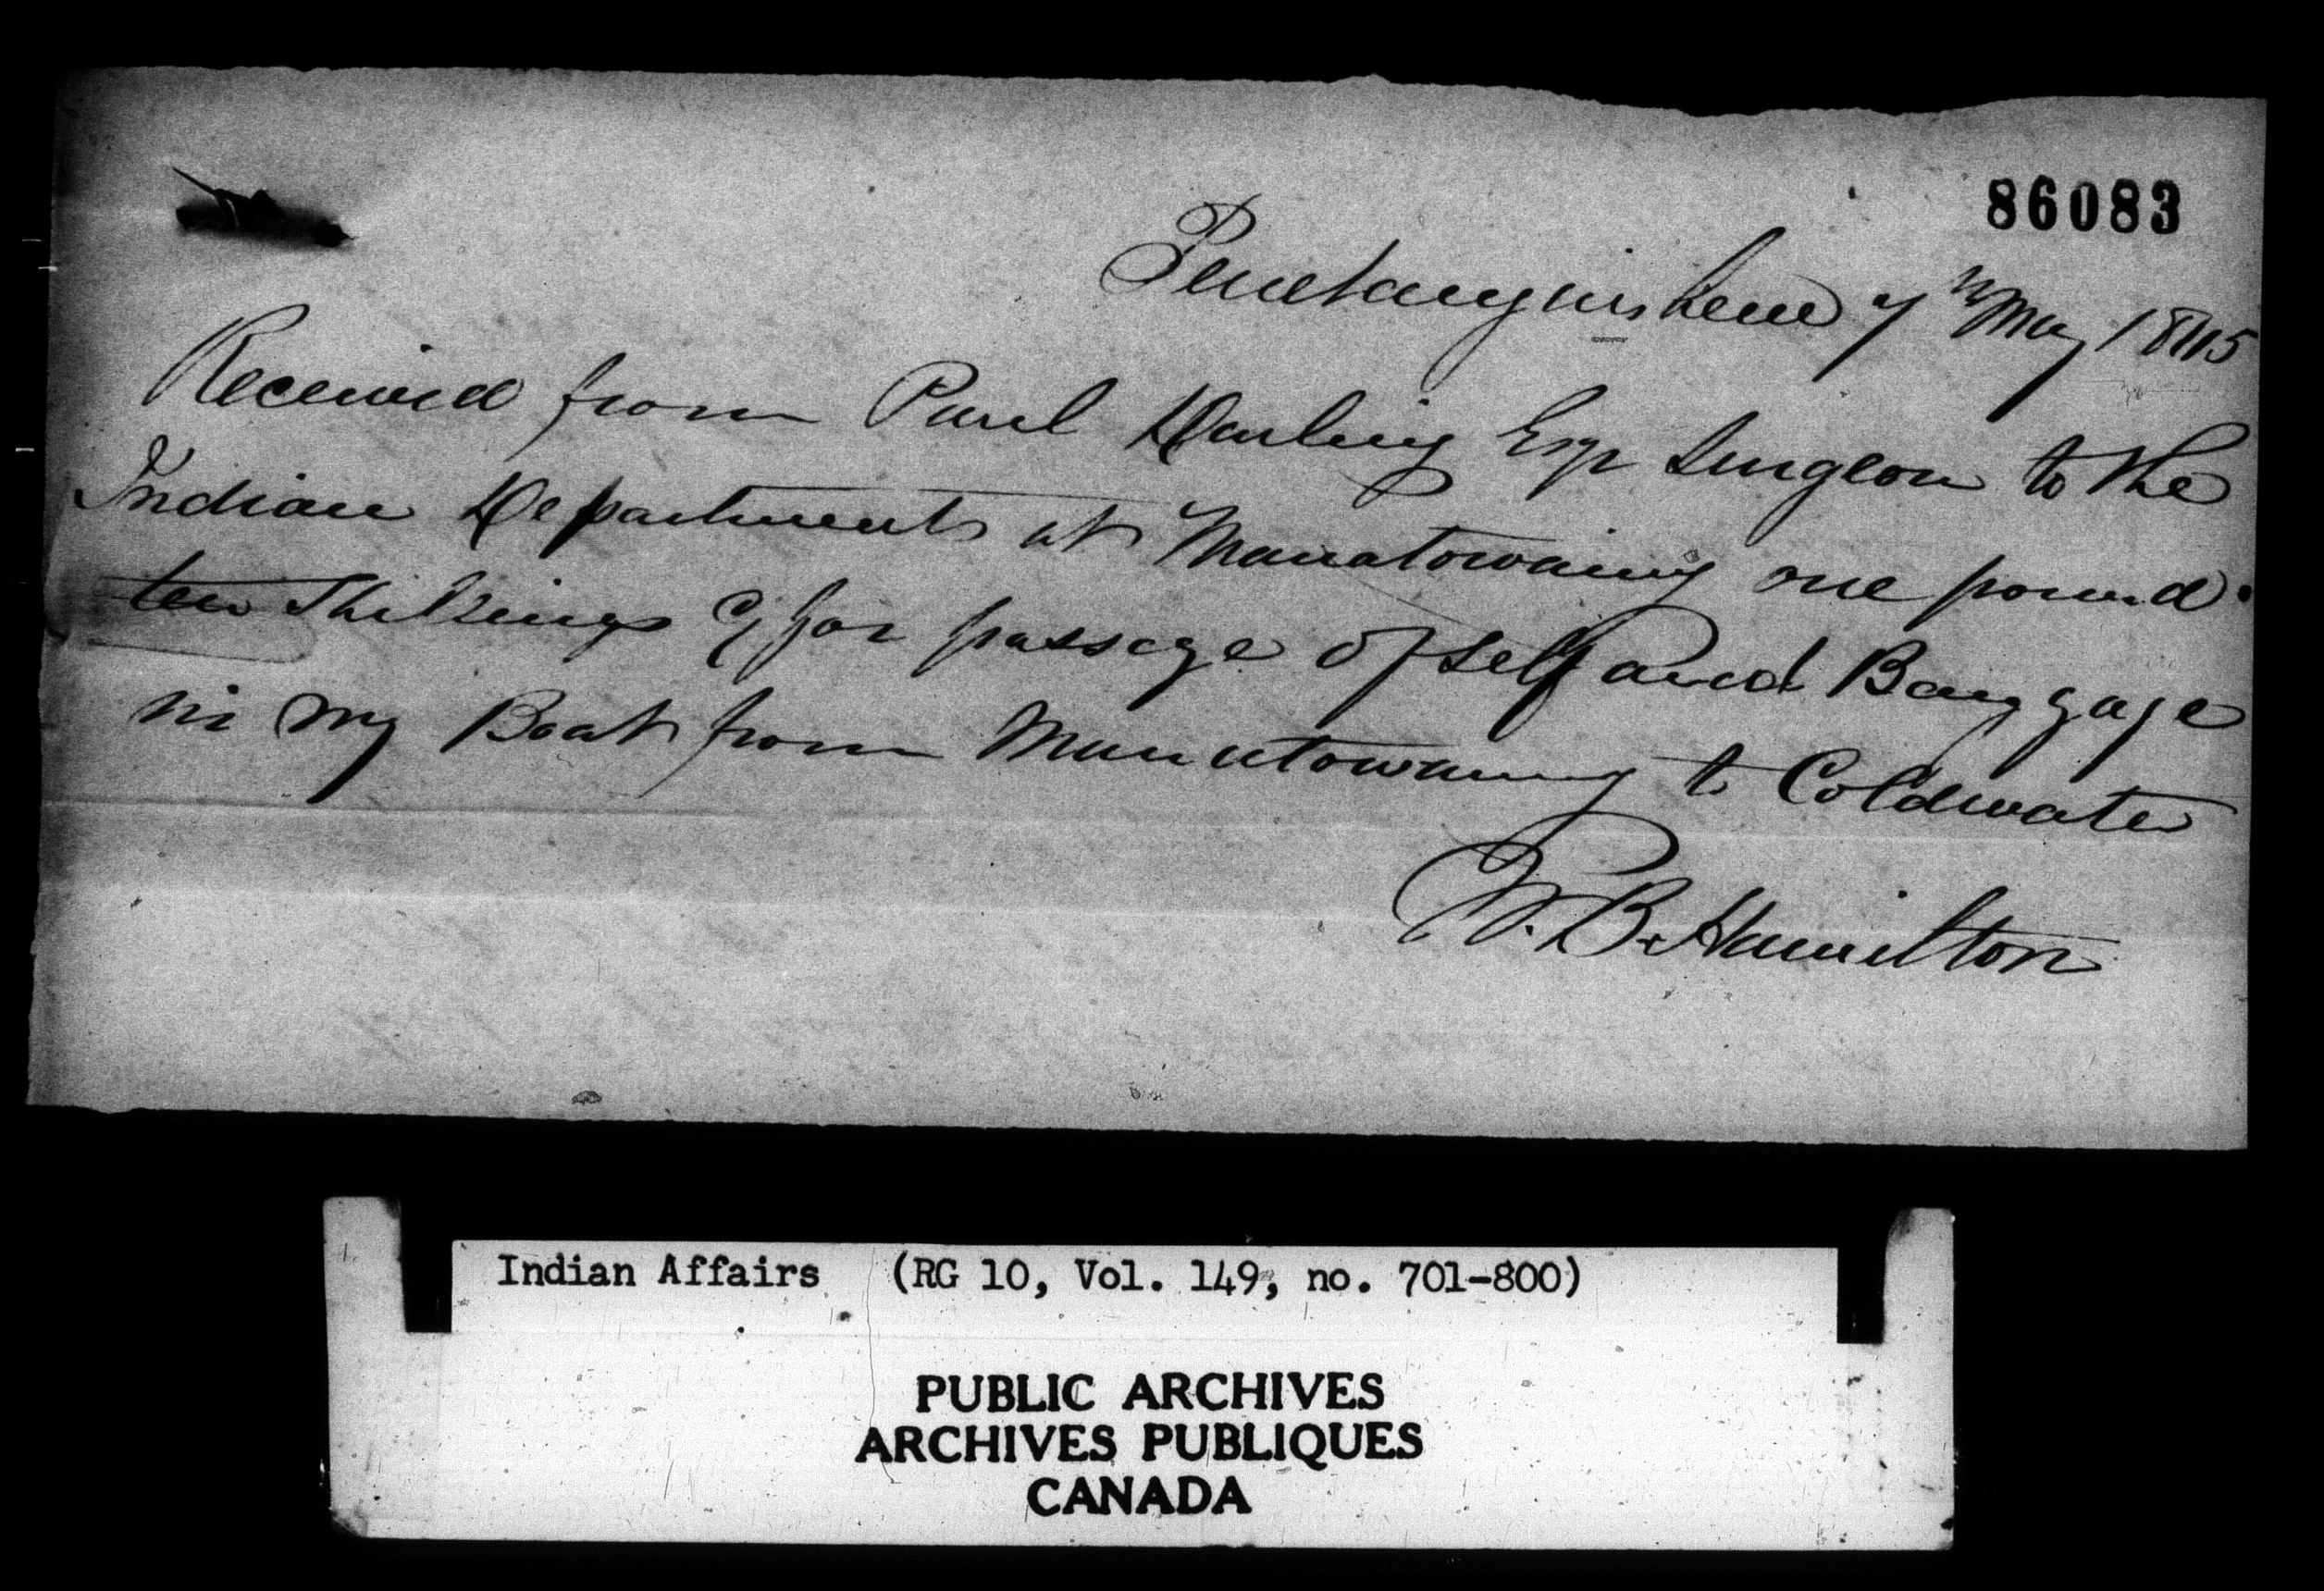 86083
Penetanguishene 7th May 1845
Received from Paul Darling Esqr Surgeon to the
Indian Department at Manatowaning one pound
ten Shillings Cy for passage of self and Baggage
in my Boat from Manatowaning to Coldwater
W. B. Hamilton
Indian Affairs (RG 10, Vol. 149, no. 701-800)
PUBLIC ARCHIVES
ARCHIVES PUBLIQUES
CANADA